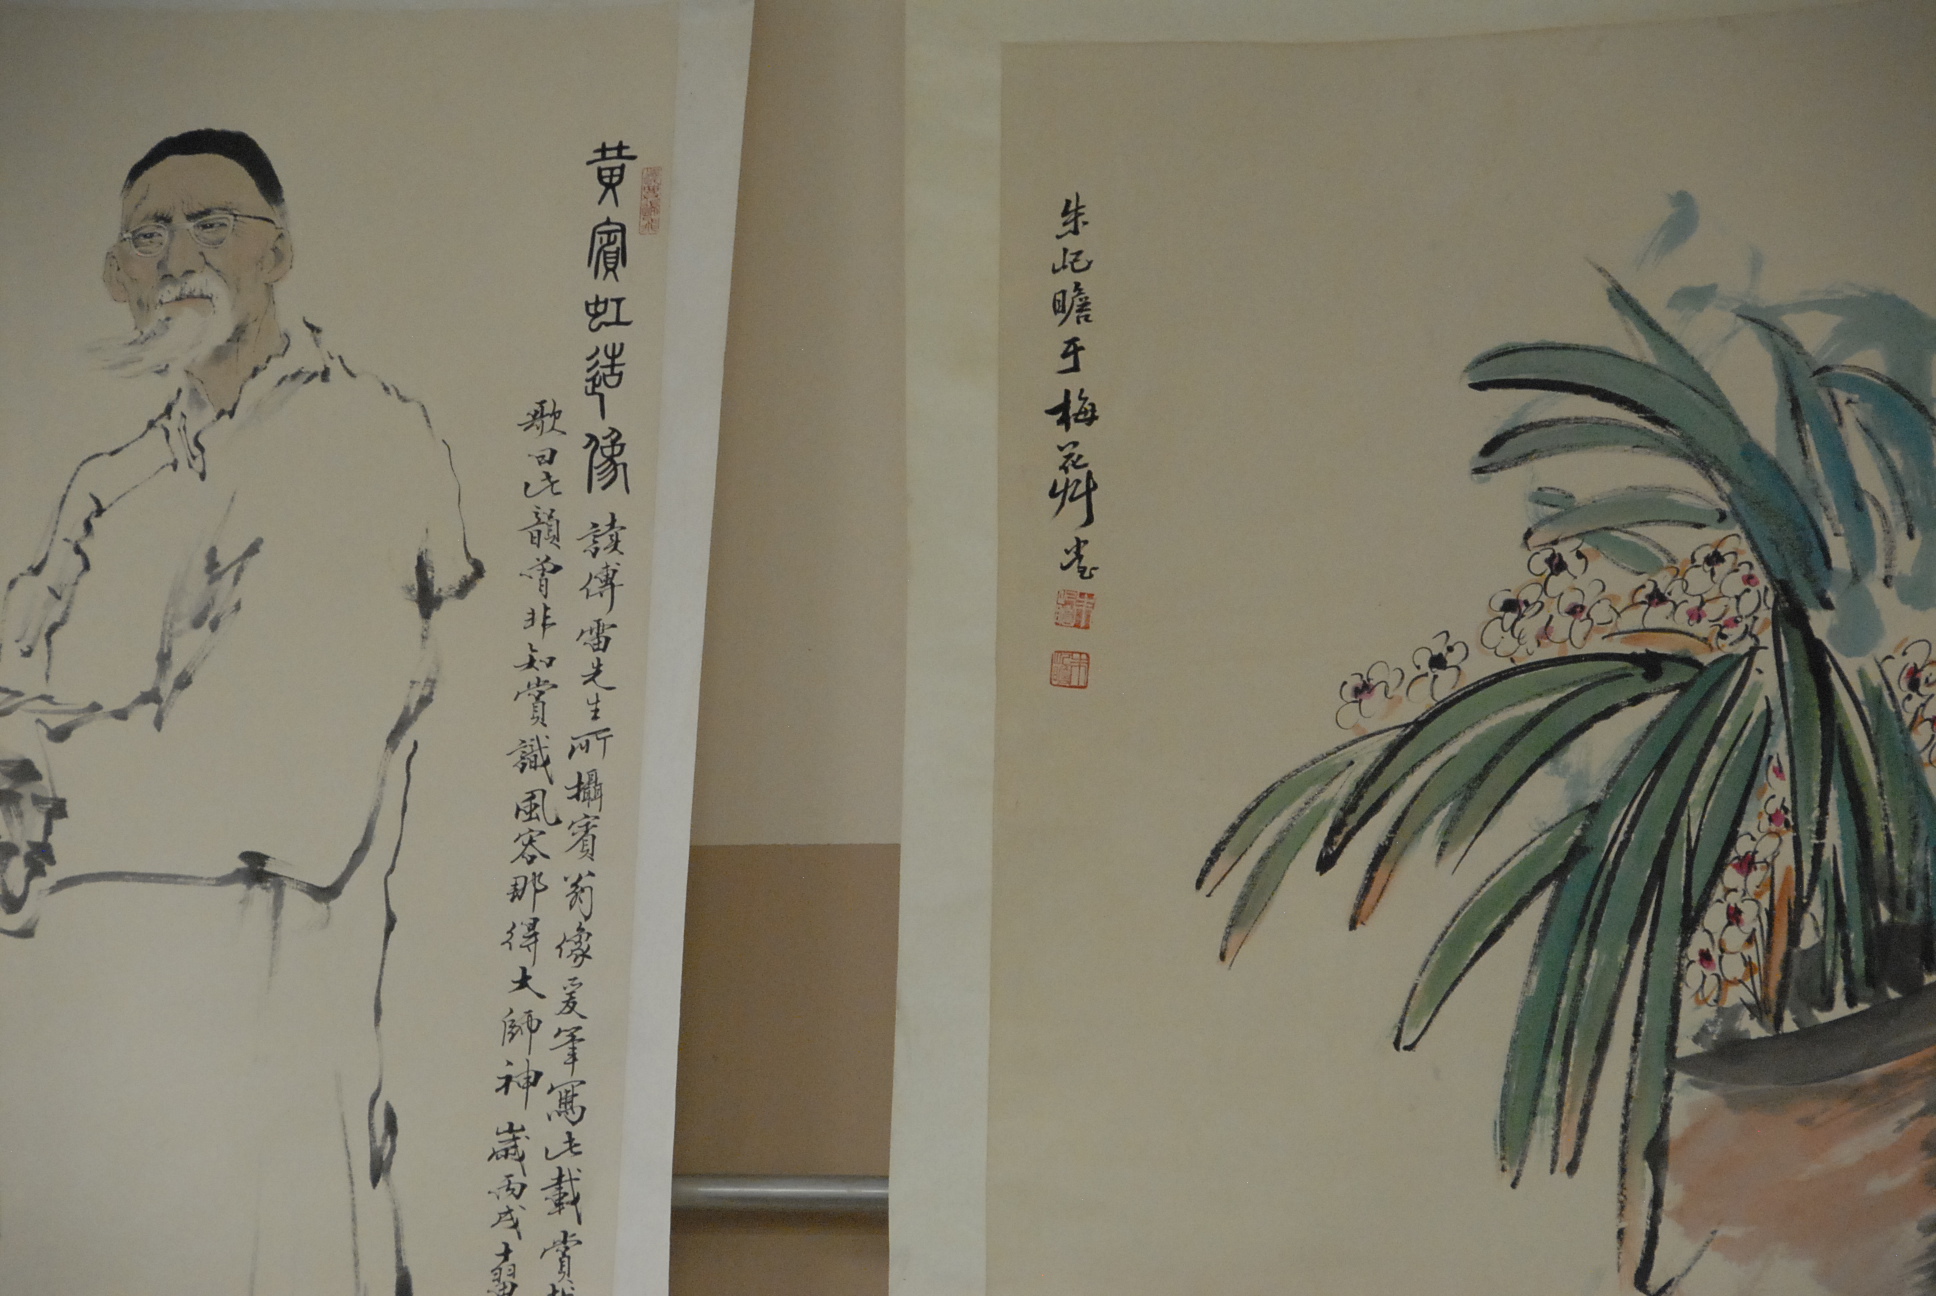 黄賓虹造像
讀傅雷先生所攝賓翁像爰筆寫此載賞
歌曰此韻曾非知賞識風容那得大師神歲丙戌
朱屺瞻于梅花艸堂